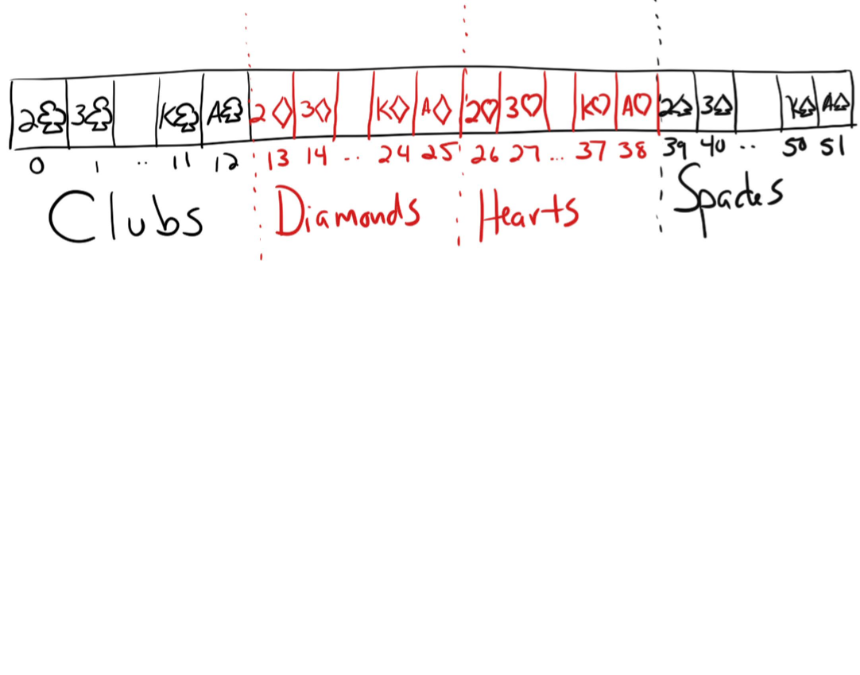 2♣ 3♣ K♣ A♣ 2♢ 3♢ K♢ A♢ 2♡ 3♡ K♡ A♡ 2♠ 3♠ K♠ A♠
0 1 .. 11 12 13 14 .. 24 25 26 27 ... 37 38 39 40 .. 50 51
Clubs Diamonds Hearts Spades